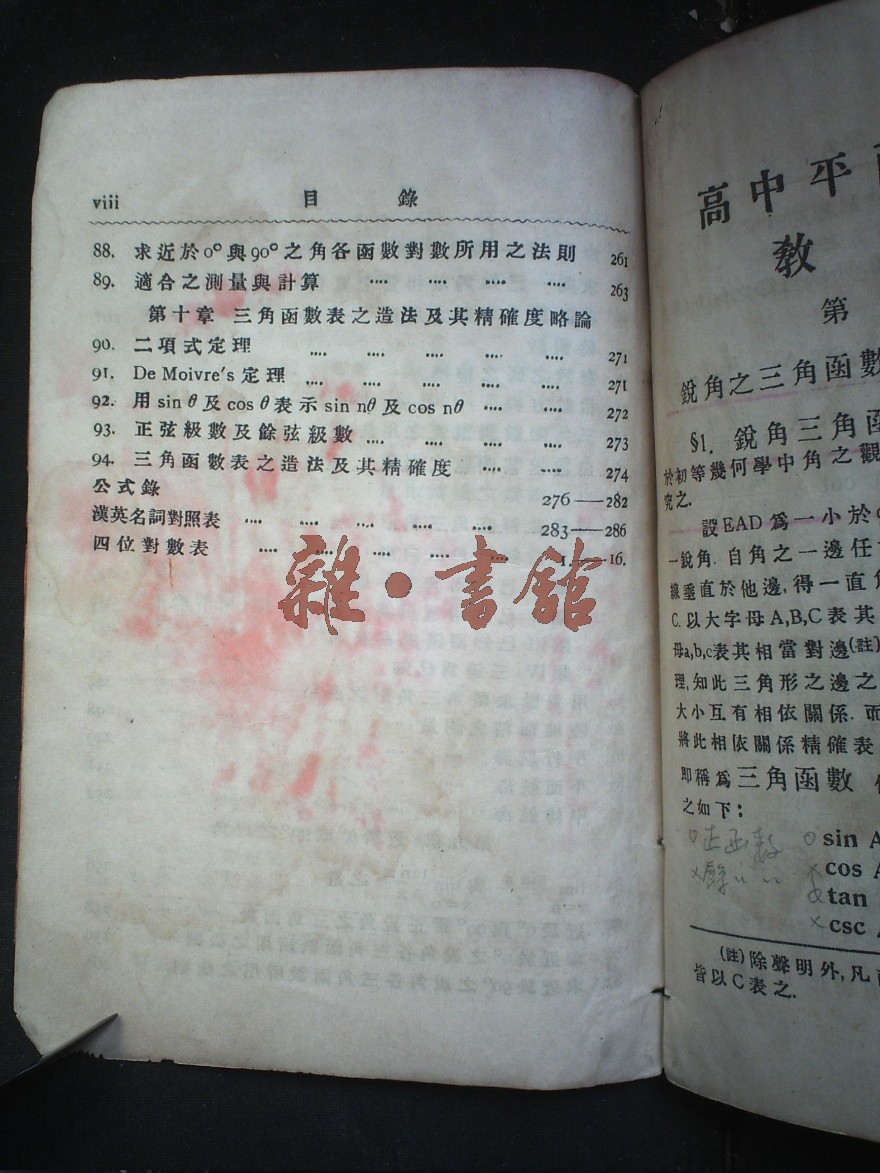 viii 目 錄
88. 求近於0°與90°之角各函數對數所用之法則 261
89. 適合之測量與計算 .... .... .... .... 263
第十章 三角函數表之造法及其精確度略論
90. 二項式定理 .... .... .... .... .... 271
91. De Moivre's 定理 .... .... .... .... .... 271
92. 用 sin θ 及 cos θ 表示 sin nθ 及 cos nθ .... .... 272
93. 正弦級數及餘弦級數 .... .... .... .... 273
94. 三角函數表之造法及其精確度 .... .... 274
公式錄 276——282
漢英名詞對照表 .... .... .... .... .... 283——286
四位對數表 .... .... .... .... .... 1.——16.
雜·書館
高中平
教
第
銳角之三角函數
§1. 銳角三角函
於初等幾何學中角之觀
究之.
設EAD爲一小於
一銳角. 自角之一邊任
線垂直於他邊,得一直角
C. 以大字母A,B,C表其
母a,b,c表其相當對邊(註)
理,知此三角形之邊之
大小互有相依關係. 而
將此相依關係精確表
即稱爲三角函數
之如下:
sin A
cos A
tan
csc
(註) 除聲明外,凡
皆以C表之.